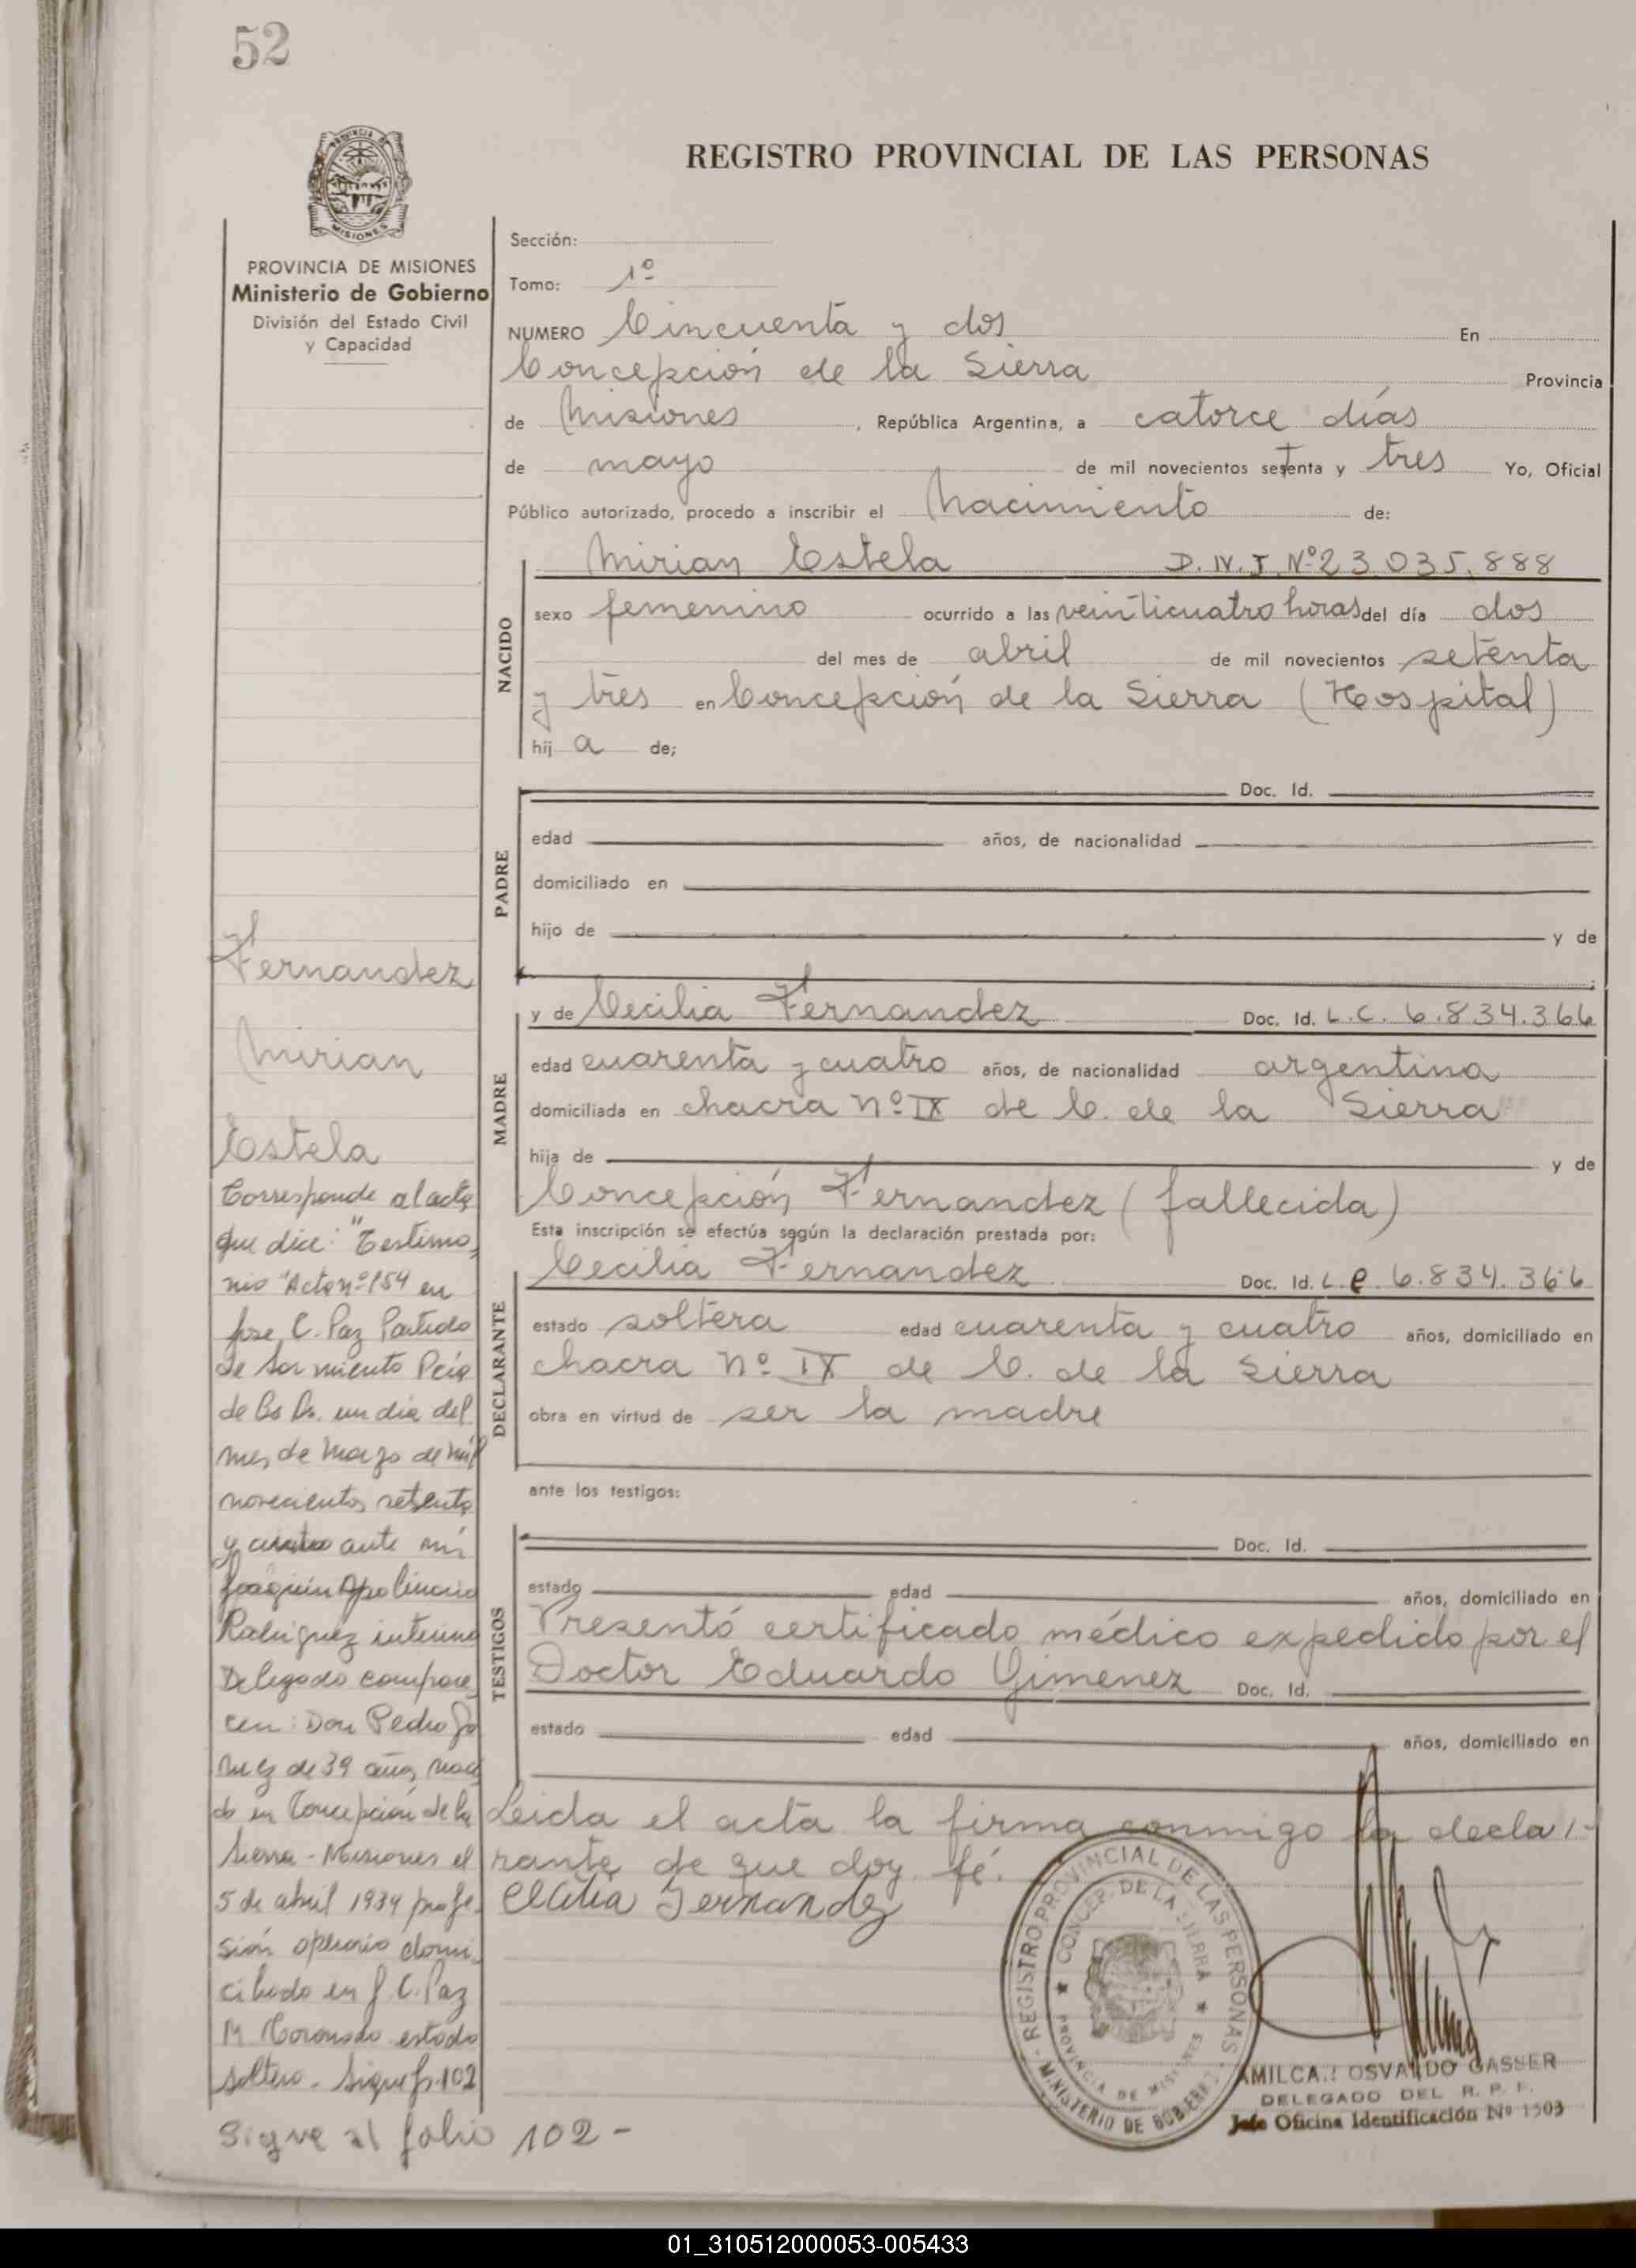 52
REGISTRO PROVINCIAL DE LAS PERSONAS
MISIONES
PROVINCIA DE MISIONES
Ministerio de Gobierno
División del Estado Civil
y Capacidad
Sección:
Tomo: 1º
NUMERO Cincuenta y dos En
Concepción de la Sierra Provincia
de Misiones, República Argentina, a catorce días
de mayo de mil novecientos setenta y tres Yo, Oficial
Público autorizado, procedo a inscribir el Nacimiento de:
NACIDO
Mirian Estela D.N.I. Nº 23.035.888
sexo femenino ocurrido a las veinticuatro horas del día dos
del mes de abril de mil novecientos setenta
y tres en Concepción de la Sierra (Hospital)
hij a de;
PADRE
Doc. Id.
edad años, de nacionalidad
domiciliado en
hijo de y de
MADRE
y de Cecilia Fernandez Doc. Id. L.C. 6.834.366
edad cuarenta y cuatro años, de nacionalidad argentina
domiciliada en chacra nº IX de C. de la Sierra
hija de y de
Concepción Fernandez (fallecida)
Esta inscripción se efectúa según la declaración prestada por:
DECLARANTE
Cecilia Fernandez Doc. Id. L.C. 6.834.366
estado soltera edad cuarenta y cuatro años, domiciliado en
chacra nº IX de C. de la Sierra
obra en virtud de ser la madre
ante los testigos:
TESTIGOS
Doc. Id.
estado edad años, domiciliado en
Presentó certificado médico expedido por el
Doctor Eduardo Gimenez Doc. Id.
estado edad años, domiciliado en
Leida el acta la firma conmigo la decla
rante de que doy fé.
Cecilia Fernandez
REGISTRO PROVINCIAL DE LAS PERSONAS
CONCEP. DE LA SIERRA
PROVINCIA DE MISIONES
MINISTERIO DE GOBIERNO
AMILCAR OSVALDO GASSER
DELEGADO DEL R. P. P.
Jefe Oficina Identificación Nº 1503
Fernandez
Mirian
Estela
Corresponde al acta
que dice: "Testimo
nio "Acta nº 154 en
Jose C. Paz Partido
de Sarmiento Pcia
de Bs As. un dia del
mes de Marzo de mil
novecientos setenta
y cuatro ante mí
Joaquin Apolinario
Rodriguez interino
Delegado compare
cen: Don Pedro Go
mez de 39 años naci
do en Concepción de la
Sierra - Misiones el
5 de abril 1934 profe
sión operario domi
ciliado en J. C. Paz
M Coronado estado
soltero. Sigue fo. 102
Sigue al folio 102 -
01_310512000053-005433